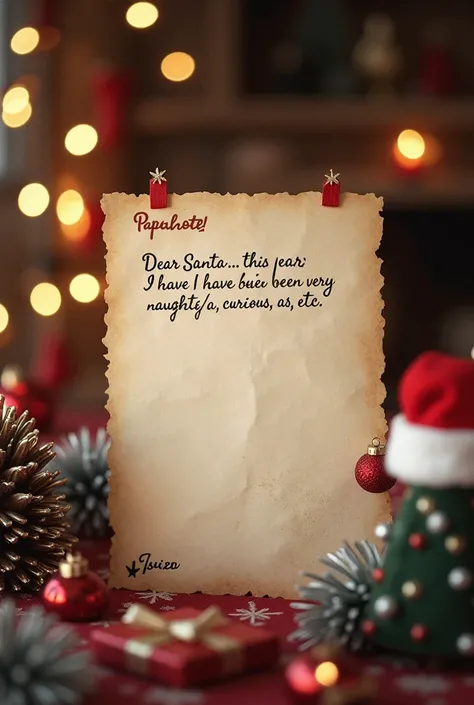 Papahote!
Dear Santa... this year:
I have I have been very
naughty/a, curious, as, etc.